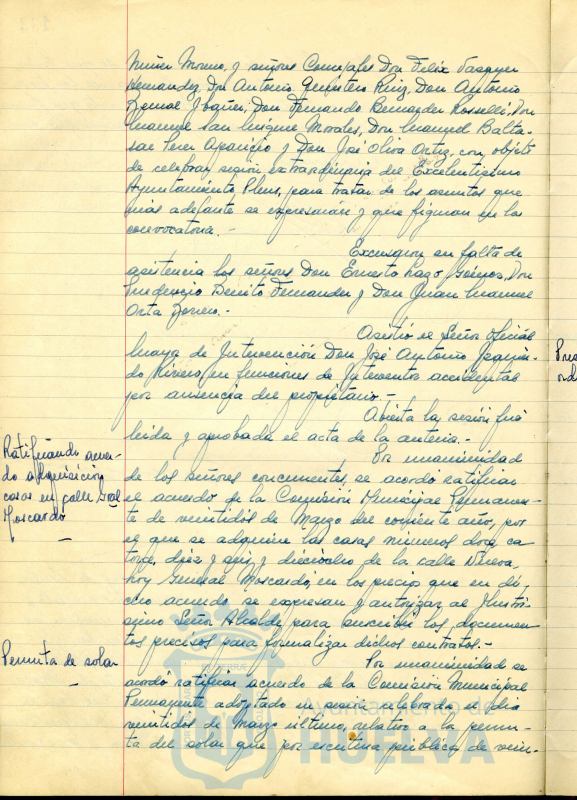 Núñez Moreno y señores Concejales Don Félix Vazquez
Hernandez, Don Antonio Quintero Ruiz, Don Antonio
Bernal Ibañez, Don Fernando Bernardez Rosselló, Don
Manuel San Miguel Morales, Don Manuel Balta-
sar Aparicio y Don José Oliva Ortiz, con objeto
de celebrar sesión extraordinaria del Excelentísimo
Ayuntamiento Pleno, para tratar de los asuntos que
más adelante se expresarán y que figuran en la
convocatoria.-
Excusaron su falta de
asistencia los señores Don Ernesto Lago Don
Prudencio Benito Fernandez y Don Juan Manuel
Orta
Asistió el Señor Oficial
Mayor de Intervención Don José Antonio Izquier-
do Riviera, en funciones de Interventor accidental
por ausencia del propietario.-
Abierta la sesión fué
leida y aprobada el acta de la anterior.-
Ratificando acuer-
do adquisición
casas en calle Gral
Moscardó
Por unanimidad
de los señores concurrentes, se acordó ratificar
el acuerdo de la Comisión Municipal Permanen-
te de veintidos de Marzo del corriente año, por
el que se adquiere las casas números doce, ca-
torce, diez y seis y dieciocho de la calle
hoy General Moscardó, en los precios que en di-
cho acuerdo se expresan y autorizar al Ilustrí-
simo Señor Alcalde para suscribir los documen-
tos precisos para formalizar dichos contratos.-
Permuta de solar
Por unanimidad se
acordó ratificar acuerdo de la Comisión Municipal
Permanente adoptado en sesión celebrada el día
veintidos de Marzo último, relativo a la permu-
ta del solar que por escritura pública de vein-
Ayuntamiento de
HUELVA